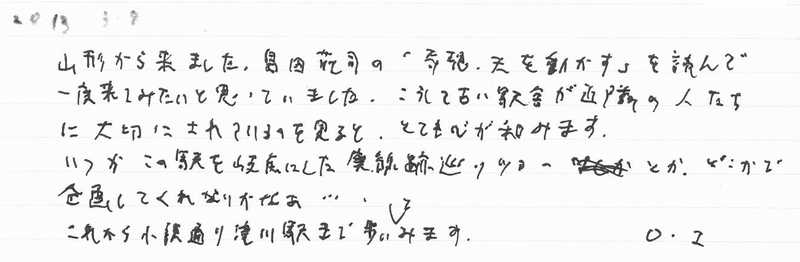 2013 3.9
山形から来ました。島田荘司の「奇想、天を動かす」を読んで
一度来てみたいと思っていました。こうして古い駅舎が近隣の人たち
に大切にされているのを見ると、とても心が和みます。
いつかこの駅を起点にした廃線跡巡りツアー とか、どこかで
企画してくれないかなあ…。
これから小説通り滝川駅まで歩いてみます。 O.I